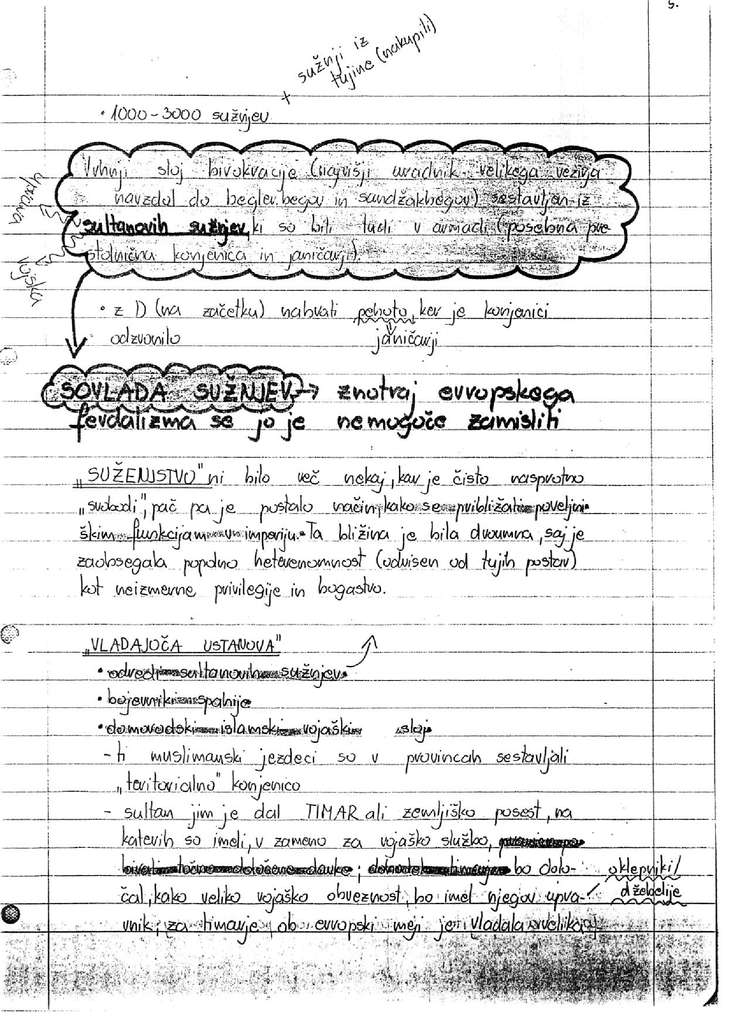 5.
+ sužnji iz
tujine (nakupili)
• 1000-3000 sužnjev
Vrhnji sloj birokracije (najvišji uradnik velikega vezirja
navzdol do beglerbegov in sandžakbegov) sestavljen iz
sultanovih sužnjev, ki so bili tudi v armadi (posebna pre
stolnična konjenica in janičarji).
uprava
vojska
• z D (na začetku) nabrali pehoto, ker je konjenici
odzvonilo janičarji
SOVLADA SUŽNJEV → znotraj evropskega
fevdalizma se jo je nemogoče zamisliti
„SUŽENJSTVO" ni bilo več nekaj, kar je čisto nasprotno
„svobodi", pač pa je postalo način, kako se približati poveljni-
škim funkcijam v imperiju. Ta bližina je bila dvoumna, saj je
zaobsegala popolno heterenomnost (odvisen od tujih postav)
kot neizmerne privilegije in bogastvo.
„VLADAJOČA USTANOVA"
• odrasli sultanovih sužnjev
• bojevniki spahije
• domorodski islamski vojaški sloj
- ti muslimanski jezdeci so v provincah sestavljali
„teritorialno" konjenico
- sultan jim je dal TIMAR ali zemljiško posest, na
katerih so imeli, v zameno za vojaško službo,
bo dolo- oklepniki/
čal, kako veliko vojaško obveznost bo imel njegov upra- džebelije
vnik; za timarje ob evropski meji je vladala velika